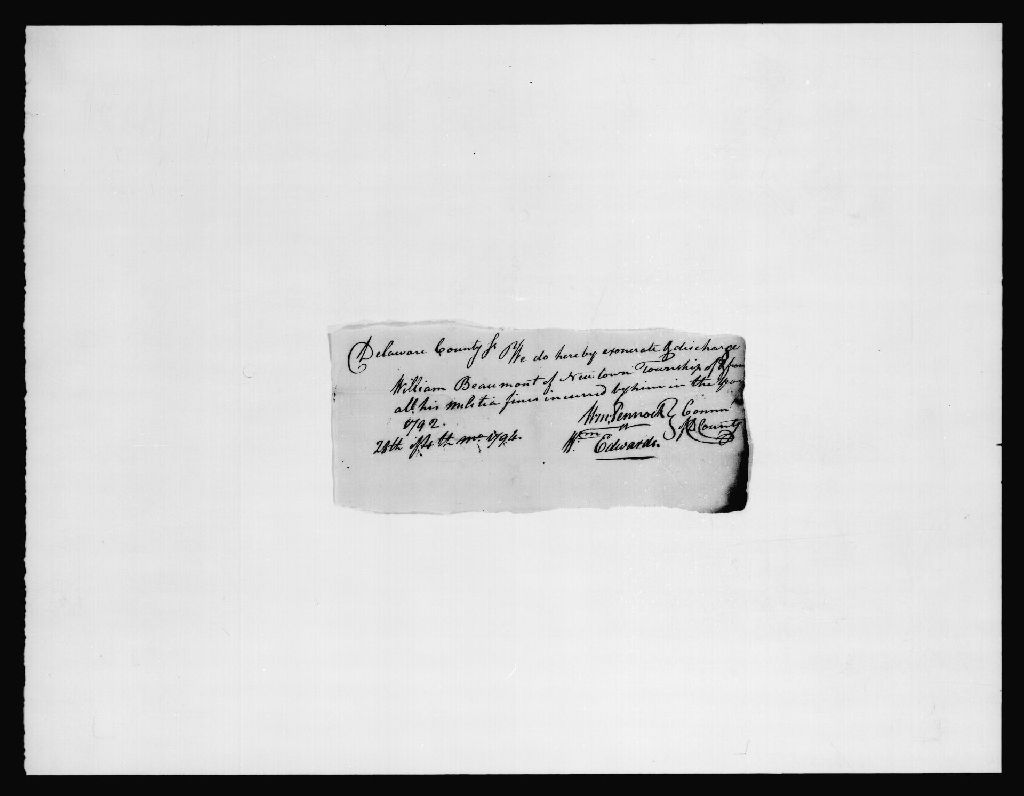 Delaware County Ss We do hereby exonerate & discharge
William Beaumont of Newtown Township of & from
all his militia fines incurred by him in the year
1792.
28th of 4th mo. 1794.
Wm Pennock } Comm
Wm Edwards. D County